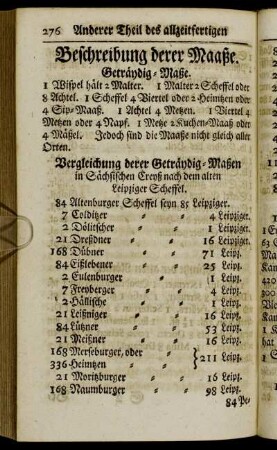 276 Anderer Theil des allzeitfertigen
Beschreibung derer Maaße.
Geträydig-Maße.
1 Wispel hält 2 Malter. 1 Malter 2 Scheffel oder
8 Achtel. 1 Scheffel 4 Viertel oder 2 Heimtzen oder
4 Sip-Maaß. 1 Achtel 4 Metzen. 1 Viertel 4
Metzen oder 4 Napf. 1 Metze 2 Kuchen-Maaß oder
4 Mäßel. Jedoch sind die Maaße nicht gleich aller
Orten.
Vergleichung derer Geträydig-Maßen
in Sächsischen Creyß nach dem alten
Leipziger Scheffel.
84 Altenburger Scheffel seyn 85 Leipziger.
7 Colditzer 〃 〃 4 Leipziger.
2 Dälitscher 〃 〃 1 Leipz.
21 Dreßdner 〃 〃 16 Leipziger.
168 Dübner 〃 〃 71 Leipz.
84 Eißlebener 〃 〃 25 Leipz.
2 Eulenburger 〃 〃 1 Leipz.
7 Freyberger 〃 〃 4 Leipz.
2 Hällische 〃 〃 1 Leipz.
21 Leißniger 〃 〃 16 Leipz.
84 Lützner 〃 〃 53 Leipz.
21 Meißner 〃 〃 16 Leipz.
168 Merseburger, oder
336 Heimtzen 〃 〃 } 211 Leipz.
21 Moritzburger 〃 〃 16 Leipz.
168 Naumburger 〃 〃 98 Leipz.
84 Pe-